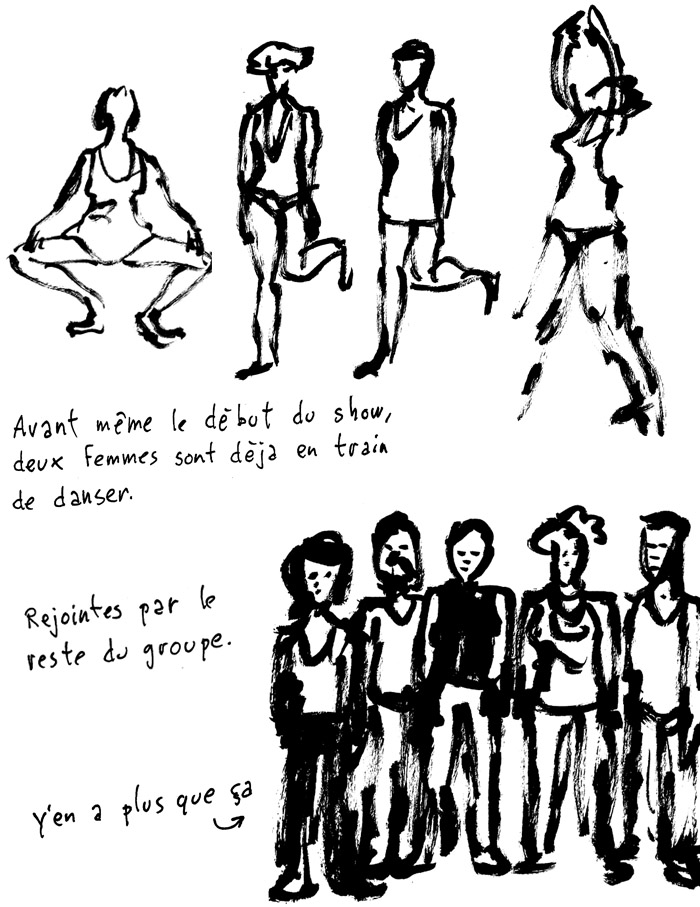 Avant même le début du show,
deux femmes sont déja en train
de danser.
Rejointes par le
reste du groupe.
Y'en a plus que ça